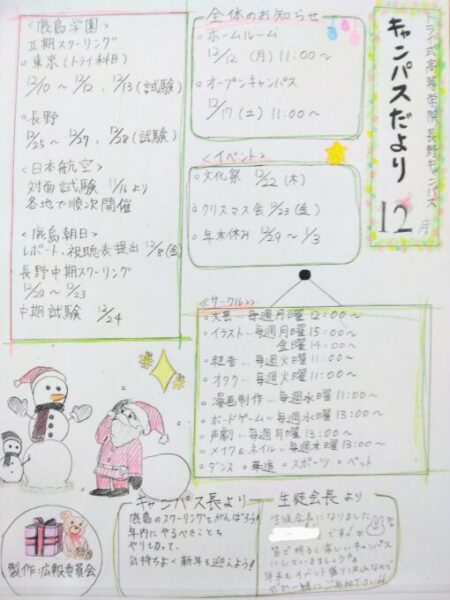 トライ式高等学院 長野キャンパス
キャンパスだより
12月
全体のお知らせ
○ホームルーム
12/12 (月) 11:00～
○オープンキャンパス
12/17 (土) 11:00～
<イベント>
○文化祭 12/22 (木)
○クリスマス会 12/23 (金)
○年末休み 12/29～1/3
<サークル>
○文芸…毎週月曜 12:00～
○イラスト…毎週月曜 15:00～
金曜 14:00～
○軽音…毎週火曜 11:00～
○オタク…毎週火曜 11:00～
○漫画制作…毎週水曜 11:00～
○ボードゲーム…毎週水曜 13:00～
○声劇…毎週月曜 13:00～
○メイク&ネイル…毎週木曜 13:00～
○ダンス ○華道 ○スポーツ ○ペット
<鹿島学園>
Ⅱ期スクーリング
○東京(トライ科目)
12/10～12/12、12/13(試験)
○長野
12/25～12/27、12/28(試験)
<日本航空>
対面試験 11/16より
各地で順次開催
<鹿島朝日>
レポート、視聴表提出 12/8(金)
長野中期スクーリング
12/20～12/23
中期試験 12/24
キャンパス長より
鹿島のスクーリングをがんばろう!
年内にやるべきことも
やり切って、
気持ちよく新年を迎えよう!
生徒会長より
生徒会長になりました
です
皆で明るく楽しいキャンパス
にしていきましょう
年末もイベント盛り沢山なので
ぜひ一緒に
製作:広報委員会